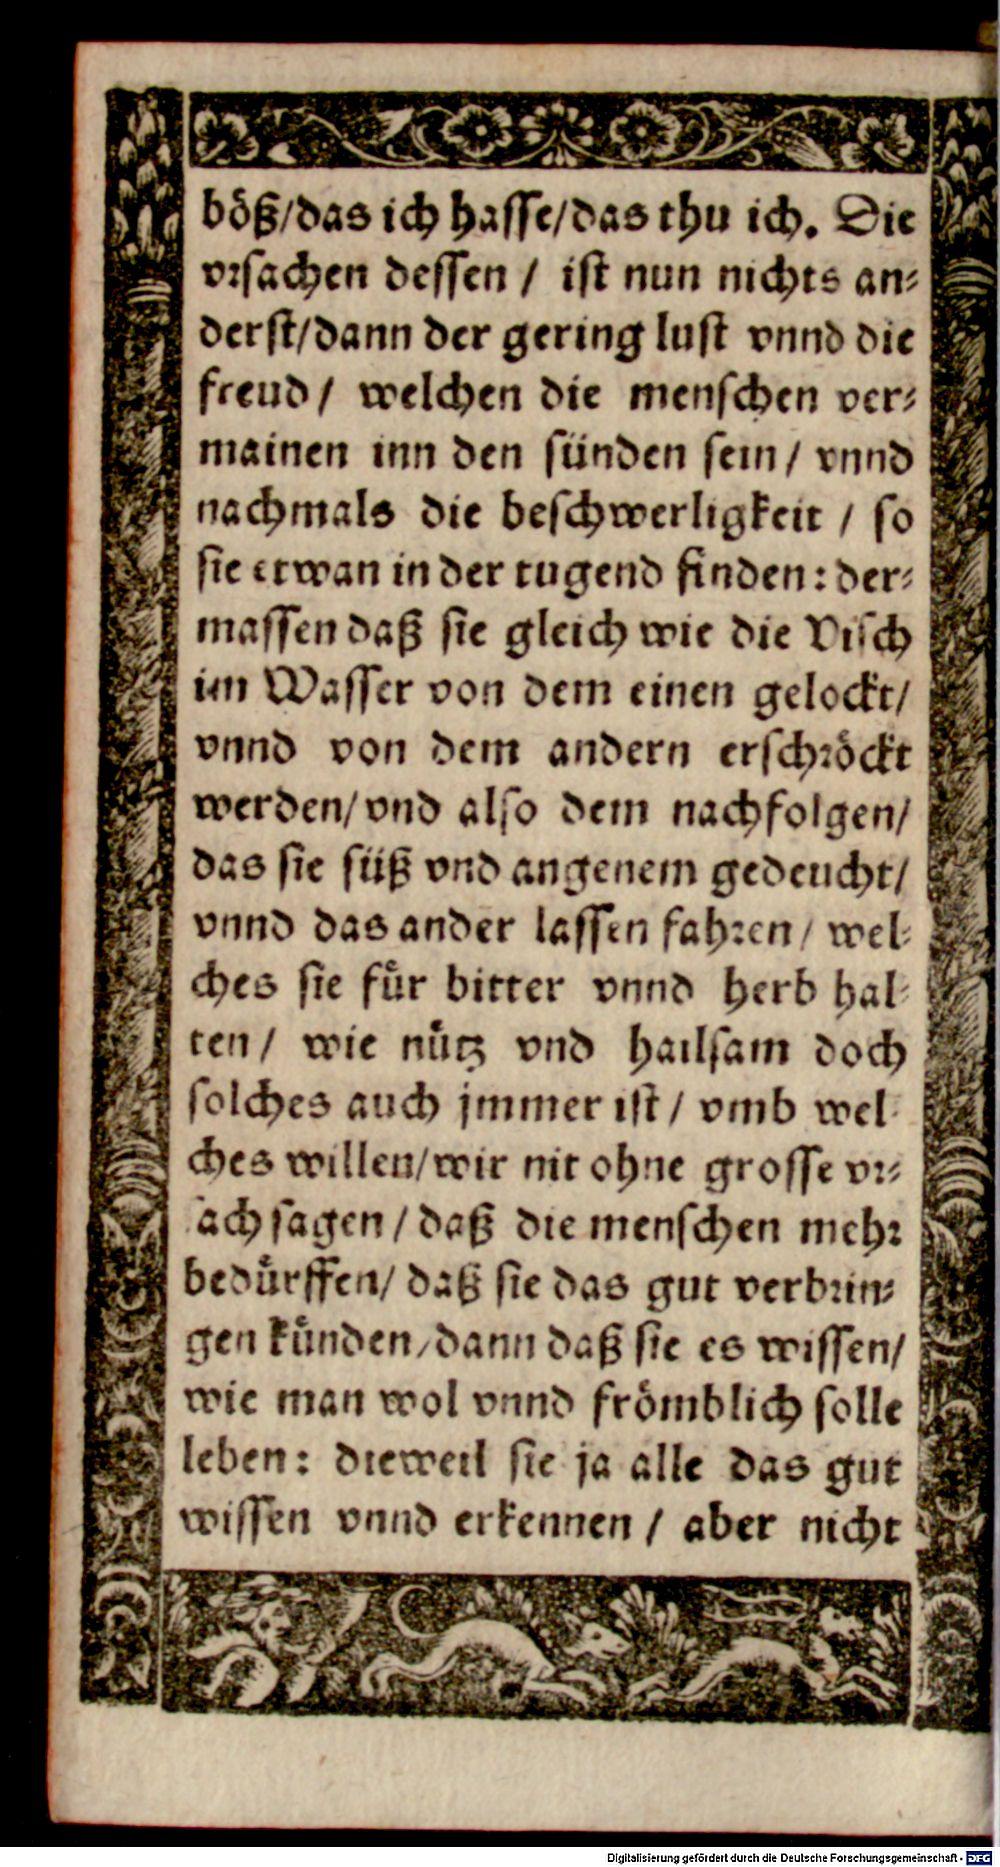 böß/das ich hasse/das thu ich. Die
vrsachen dessen / ist nun nichts an⸗
derst/dann der gering lust vnnd die
freud / welchen die menschen ver⸗
mainen inn den sünden sein / vnnd
nachmals die beschwerligkeit / so
sie etwan in der tugend finden: der⸗
massen daß sie gleich wie die Visch
im Wasser von dem einen gelockt/
vnnd von dem andern erschröckt
werden/vnd also dem nachfolgen/
das sie süß vnd angenem gedeucht/
vnnd das ander lassen fahren / wel⸗
ches sie für bitter vnnd herb hal⸗
ten / wie nůtz vnd hailsam doch
solches auch jmmer ist / vmb wel⸗
ches willen/wir nit ohne grosse vr⸗
sach sagen / daß die menschen mehr
bedürffen/ daß sie das gut verbrin⸗
gen künden/dann daß sie es wissen/
wie man wol vnnd frömblich solle
leben: dieweil sie ja alle das gut
wissen vnnd erkennen / aber nicht
Digitalisierung gefördert durch die Deutsche Forschungsgemeinschaft - DFG